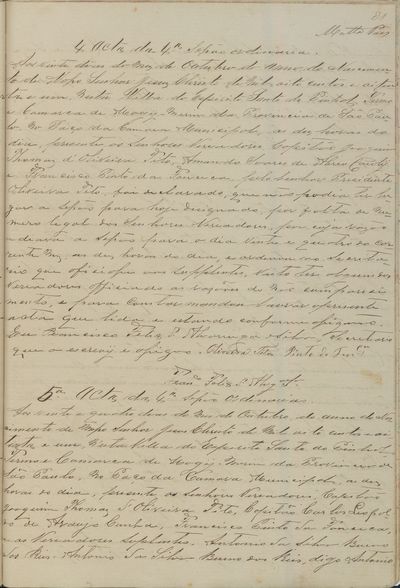 4ª Acta da 4ª Sessão ordinaria.
Aos vinte dias do Mez de Outubro do anno do Nascimen
to de Nosso Senhor Jesus Christo de Mil oito centos e oi
tenta e um, Nesta Villa do Espirito Santo do Pinhal, Termo
e Comarca de Mogy-Mirim da Provincia de São Pau
lo. No Paço da Camara Municipal, as dez horas do
dia, presentes os Senhores Vereadores Capitães Joaquim
Thomaz d'Oliveira Pita, Amando Soares de
e Francisco Pinto da Fonceca, pelo Senhor Presidente
Oliveira Pita, foi declarado, que não podia ter lu
gar a sessão para hoje designada, por falta de Nu
mero legal dos Senhores Vereadores, por cuja razão
adiava a Sessão para o dia vinte e quatro do cor
rente Mez, as dez horas do dia, e ordenou ao Secreta
rio que officiasse aos Supplentes, visto ter alguns dos
Vereadores officiado as razões do não compareci
mento, e para constar mandou lavrar a presente
acta que lida e estando conforme assignão.
Eu Francisco Felis Secretario
que o escrevy e assigno. Oliveira Pita Pinto da Fonca
Franco Felis
5ª Acta da 4ª Sessão Ordinaria.
Aos vinte e quatro dias do Mez de Outubro, do anno do Nas
cimento de Nosso Senhor Jesus Christo de Mil oito centos e oi
tenta e um Nesta Villa do Espirito Santo do Pinhal,
Termo e Comarca de Mogy-Mirim da Provincia de
São Paulo, No Paço da Camara Municipal, as dez
horas do dia, presentes os Senhores Vereadores, Capitão
Joaquim Thomaz d'Oliveira Pita, Capitão Carlos Leopol
do de Araujo Cunha, Francisco Pinto da Fonceca,
e os Vereadores Supplentes Antonio da Silva Bueno
dos Reis Antonio da Silva Bueno dos Reis, digo Antonio